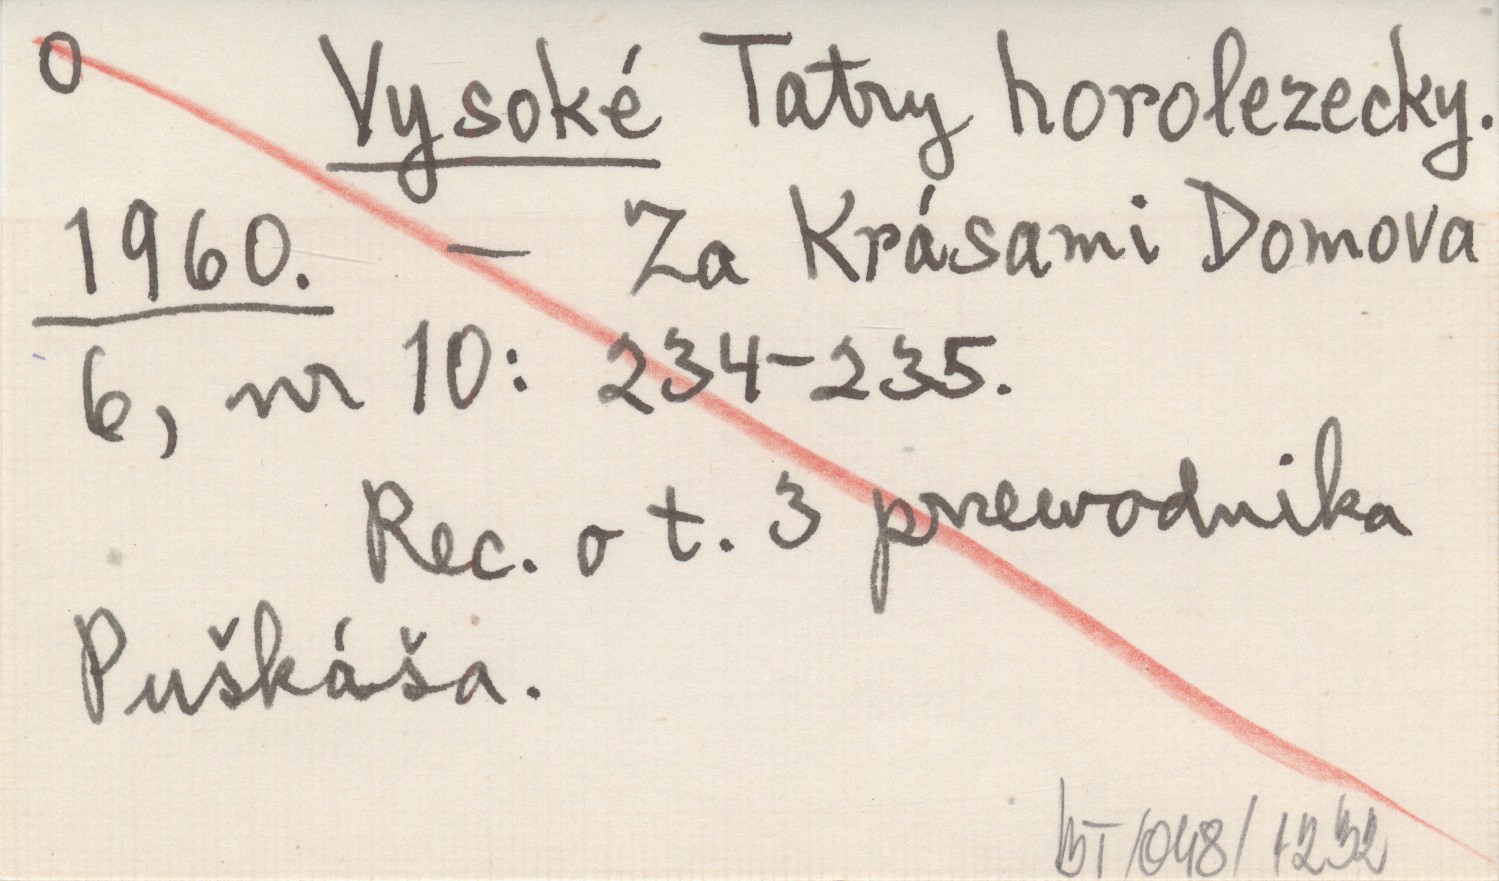 0 Vysoké Tatry horolezecky.
1960. — Za Krásami Domova
6, nr 10: 234-235.
Rec. o t. 3 przewodnika
Puškáša.
BT/048/1232